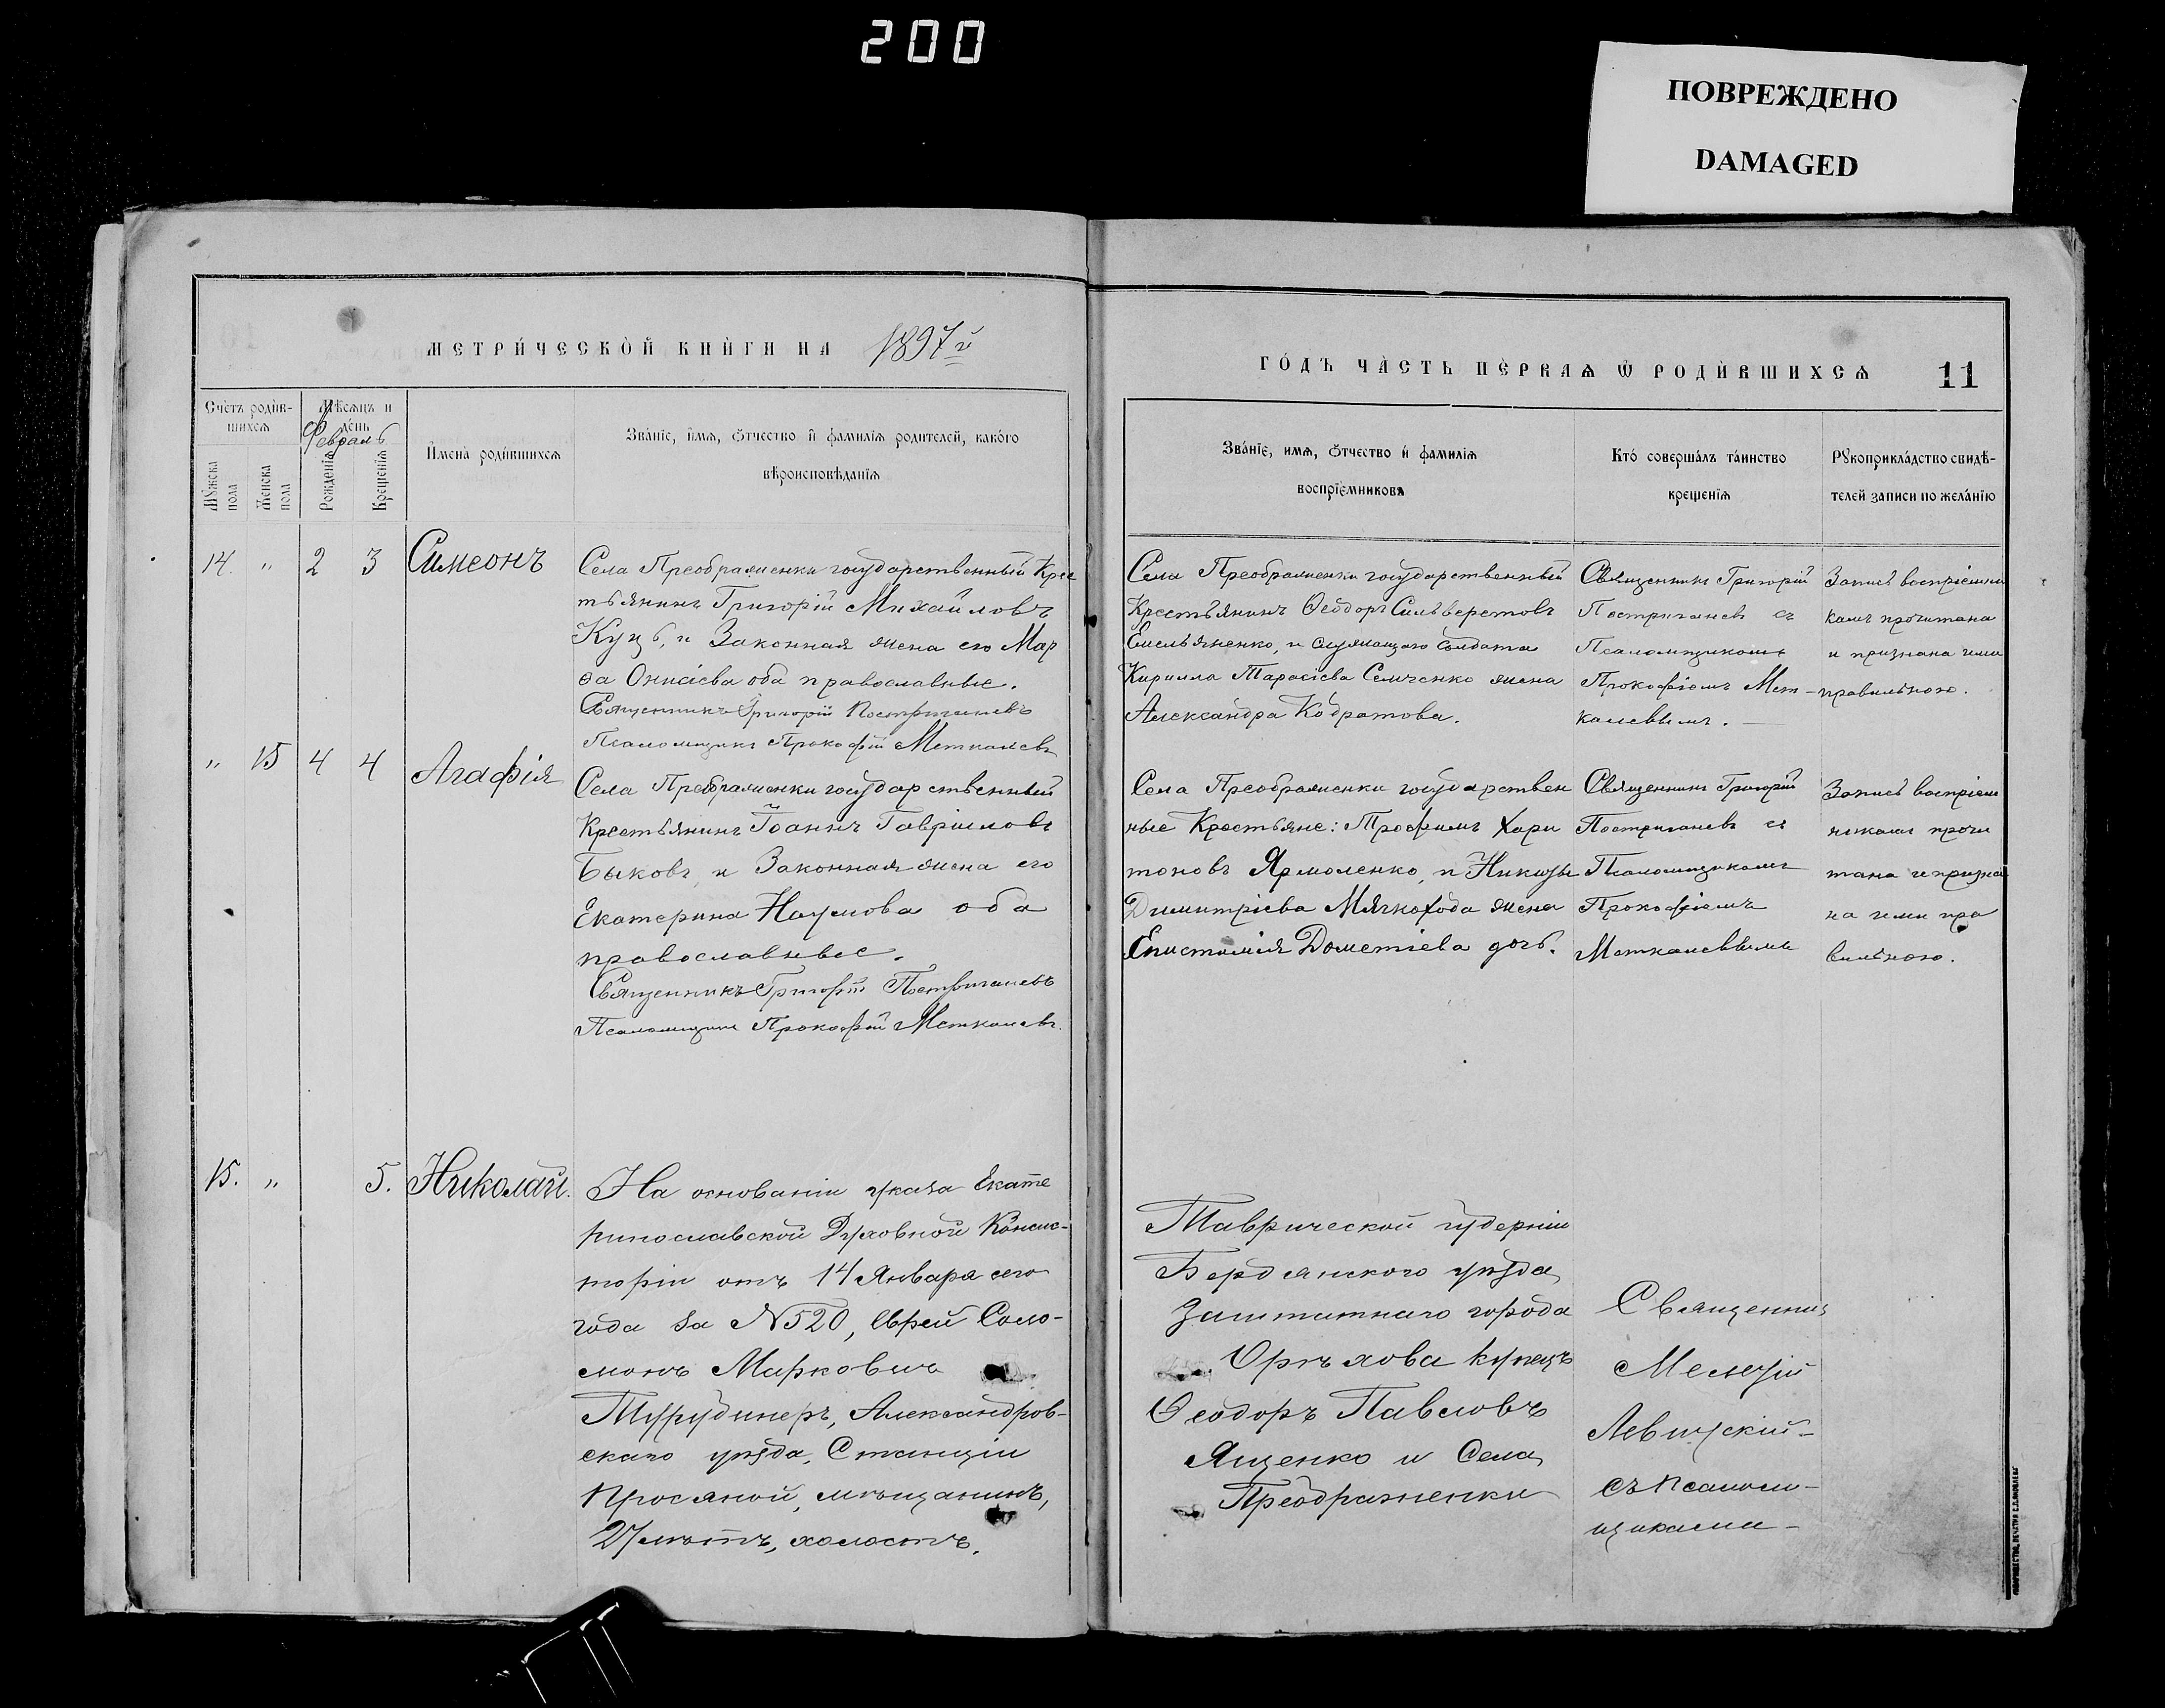 200
ПОВРЕЖДЕНО
DAMAGED
МЕТРИ́ЧЕСКОЙ КНИ́ГИ НА 1897й
ГО́ДЪ ЧА́СТЬ ПЕ́РВАѦ Ѿ РОДИ́ВШИХСѦ 11
Сче́тъ роди́в-
шихсѧ
Мѣ́сѧцъ и
де́нь
Февраль
Мꙋжеска
пола
Женска
пола
Рожденїѧ
Крещенїѧ
И҆мена̀ роди́вшихсѧ
Зва́нїе, и҆́мѧ, ѻ҆́тчество и҆ фамилїѧ родителей, како́го
вѣроисповѣданїѧ
Зва́нїе, имѧ, ѻ҆́тчество и҆ фамилїѧ
воспрїе́мниковъ
Кто́ соверша́лъ та́инство
креще́нїѧ
Рꙋкоприкла́дство свидѣ́-
телей записи по жела́нїю
14. " 2 3 Симеонъ
Села Преображенки государственный Крес
тьянинъ Григорій Михайловъ
Куцъ, и Законная жена его Мар
ѳа Онисіева оба православные.
Священникъ Григорій Постригачевъ
Псаломщикъ Прокофій Меткалевъ
Села Преображенки государственный
Крестьянинъ Ѳеодоръ Сильверстовъ
Емельяненко, и служащаго солдата
Кирилла Тарасіева Семченко жена
Александра Кодратова.
Священникъ Григорій
Постригачевъ съ
Псаломщикомъ
Прокофіемъ Мет-
калевымъ.
Запись воспріемни
камъ прочитана
и признана ими
правильною.
" 15 4 4 Агафія
Села Преображенки государственный
Крестьянинъ Іоаннъ Гавриловъ
Быковъ, и Законная жена его
Екатерина Наумова оба
православные.
Священникъ Григорій Постригачевъ
Псаломщикъ Прокофій Меткалевъ.
Села Преображенки государствен
ные Крестьяне: Трофимъ Хари
тоновъ Ярмоленко, и Никиты
Димитріева Мягкохода жена
Епистимія Дометіева дочь.
Священникъ Григорій
Постригачевъ съ
Псаломщикомъ
Прокофіемъ
Меткалевымъ
Запись воспріем
никамъ прочи
тана и призна
на ими пра
вильною.
15. " 5. Николай.
На основаніи указа Екате
ринославской Духовной Консис-
торіи отъ 14 Января сего
года за N520, еврей Соло-
монъ Марковичъ
Александров-
скаго уѣзда, Станціи
Просяной, мѣщанинъ,
27 лѣтъ, холостъ.
Таврической губерніи
Бердянскаго уѣзда
Заштатнаго города
Орѣхова купецъ
Ѳеодоръ Павловъ
Ященко и Села
Преображенки
Священникъ
Мелетій
Левитскій
съ псаломщ-
щиками